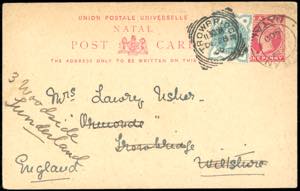 UNION POSTALE UNIVERSELLE
NATAL
POST CARD
THE ADDRESS ONLY TO BE WRITTEN ON THIS
TROWBRIDGE
Mrs Lawry Usher
Ormonde
Trowbridge
Wiltshire
3 Woodside
Sunderland
England